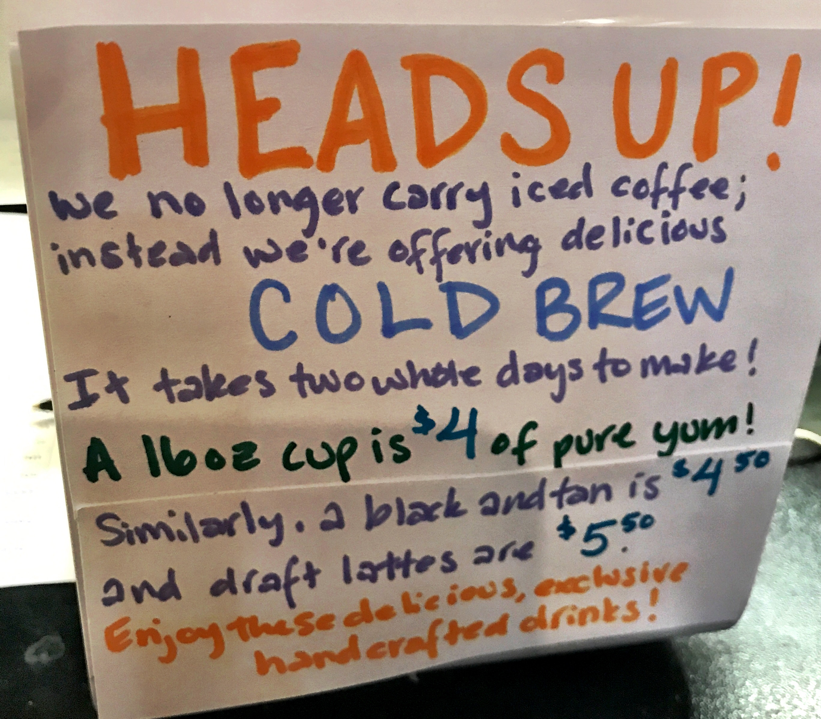 HEADS UP!
we no longer carry iced coffee;
instead we're offering delicious
COLD BREW
It takes two whole days to make!
A 16oz cup is $4 of pure yum!
Similarly, a black and tan is $4 50
and draft lattes are $5.50
Enjoy these delicious, exclusive
handcrafted drinks!